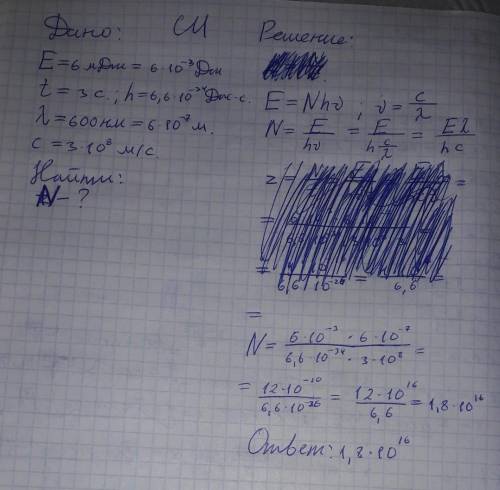 Дано: СИ
E = 6 мДж = 6·10⁻³ Дж
t = 3 с. ; h = 6,6·10⁻³⁴ Дж·с.
λ = 600 нм = 6·10⁻⁷ м.
c = 3·10⁸ м/с.
Найти:
N - ?
Решение:
E = Nhν ; ν = c/λ
N = E/hν = E/(h c/λ) = Eλ/hc
=
N = (6·10⁻³ · 6·10⁻⁷)/(6,6·10⁻³⁴ · 3·10⁸) =
= (12·10⁻¹⁰)/(6,6·10⁻²⁶) = (12·10¹⁶)/6,6 = 1,8·10¹⁶
Ответ: 1,8·10¹⁶